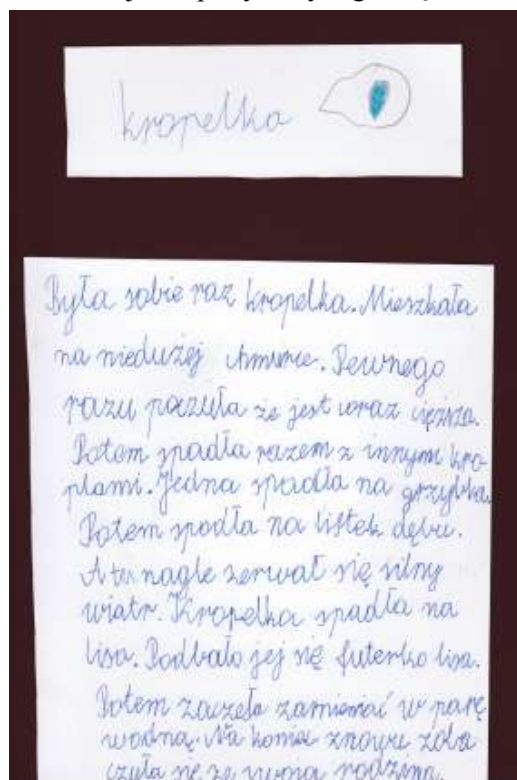 kropelka
Była sobie raz kropelka. Mieszkała
na niedużej chmurce. Pewnego
razu poczuła że jest coraz cięższa.
Potem spadła razem z innymi kro-
plami. Jedna spadła na grzybka.
Potem spadła na listek dębu.
A tu nagle zerwał się silny
wiatr. Kropelka spadła na
lisa. Podbało jej się futerko lisa.
Potem zaczęła zamieniać w parę
wodną. Na końcu znowu zoba
czyła się ze swoją rodziną.